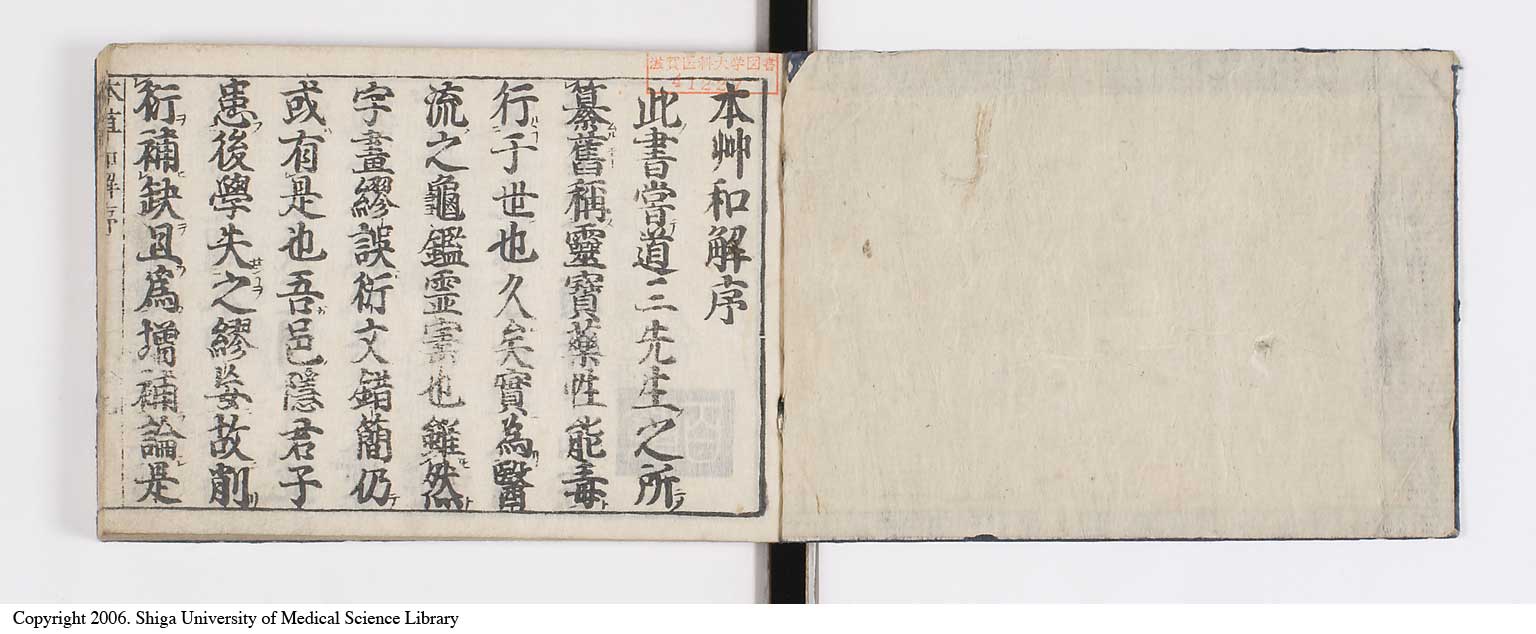 本艸和解序
此書嘗道三先生之所
纂舊稱靈寶藥性能毒
行于世也久矣實為醫
流之龜鑑霊寶也雖然
字畫繆誤衍文錯簡仍
或有是也吾邑隱君子
患後學失之繆妄故削
衍補缺且為增補論是
滋賀医科大学図書
4122
Copyright 2006. Shiga University of Medical Science Library